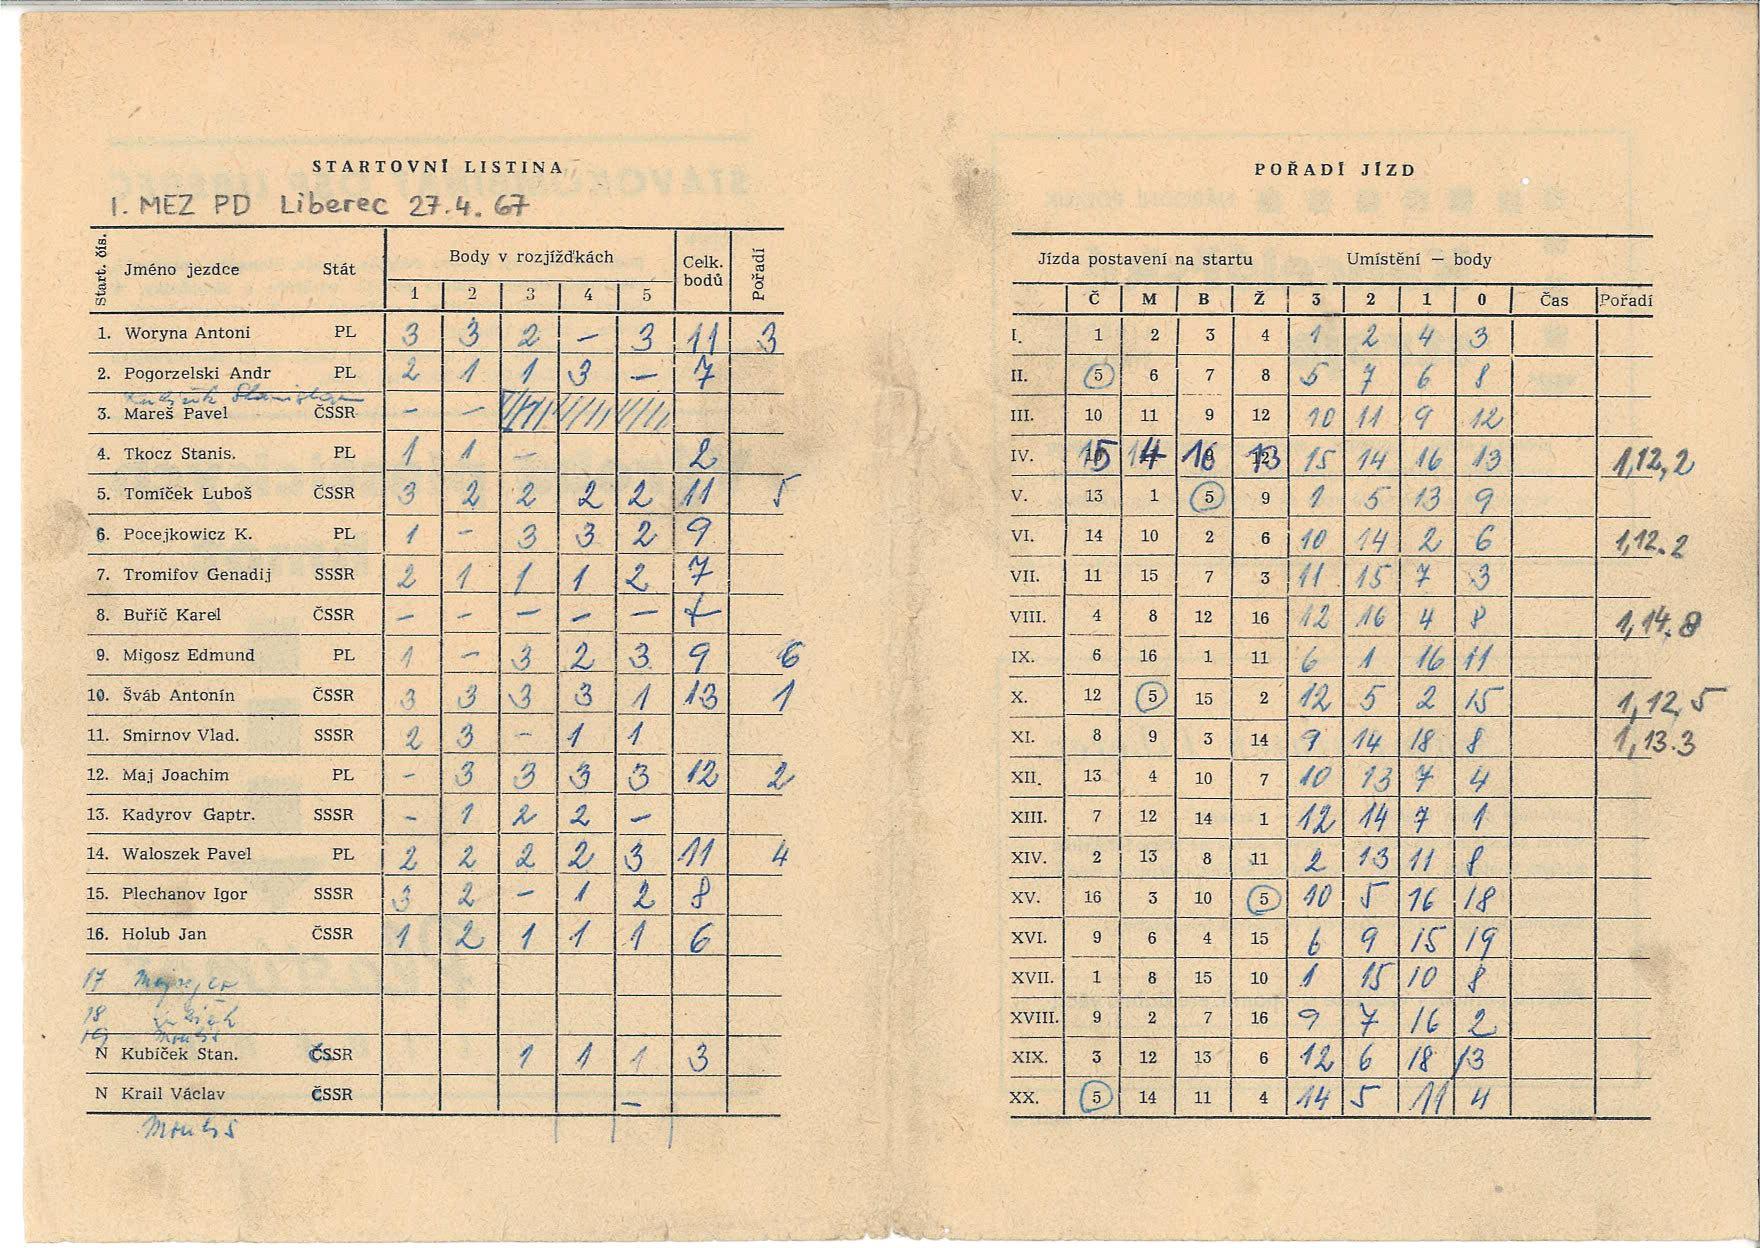 STARTOVNÍ LISTINA
I. MEZ PD Liberec 27.4.67
Start. čís. Jméno jezdce Stát Body v rozjížďkách Celk. bodů Pořadí
1 2 3 4 5
1. Woryna Antoni PL 3 3 2 – 3 11 3
2. Pogorzelski Andr PL 2 1 1 3 – 7
Stanislav
3. Mareš Pavel ČSSR – –
4. Tkocz Stanis. PL 1 1 – 2
5. Tomíček Luboš ČSSR 3 2 2 2 2 11 5
6. Pocejkowicz K. PL 1 – 3 3 2 9
7. Tromifov Genadij SSSR 2 1 1 1 2 7
8. Buřič Karel ČSSR – – – – –
9. Migosz Edmund PL 1 – 3 2 3 9 6
10. Šváb Antonín ČSSR 3 3 3 3 1 13 1
11. Smirnov Vlad. SSSR 2 3 – 1 1
12. Maj Joachim PL – 3 3 3 3 12 2
13. Kadyrov Gaptr. SSSR – 1 2 2 –
14. Waloszek Pavel PL 2 2 2 2 3 11 4
15. Plechanov Igor SSSR 3 2 – 1 2 8
16. Holub Jan ČSSR 1 2 1 1 1 6
17
18
19
N Kubíček Stan. ČSSR 1 1 1 3
N Krail Václav ČSSR –
POŘADÍ JÍZD
Jízda postavení na startu Umístění — body
Č M B Ž 3 2 1 0 Čas Pořadí
I. 1 2 3 4 1 2 4 3
II. 5 6 7 8 5 7 6 8
III. 10 11 9 12 10 11 9 12
IV. 15 14 16 13 15 14 16 13 1,12,2
V. 13 1 5 9 1 5 13 9
VI. 14 10 2 6 10 14 2 6 1,12.2
VII. 11 15 7 3 11 15 7 3
VIII. 4 8 12 16 12 16 4 8 1,14.8
IX. 6 16 1 11 6 1 16 11
X. 12 5 15 2 12 5 2 15 1,12,5
XI. 8 9 3 14 9 14 18 8 1,13.3
XII. 13 4 10 7 10 13 7 4
XIII. 7 12 14 1 12 14 7 1
XIV. 2 13 8 11 2 13 11 8
XV. 16 3 10 5 10 5 16 18
XVI. 9 6 4 15 6 9 15 19
XVII. 1 8 15 10 1 15 10 8
XVIII. 9 2 7 16 9 7 16 2
XIX. 3 12 13 6 12 6 18 13
XX. 5 14 11 4 14 5 11 4